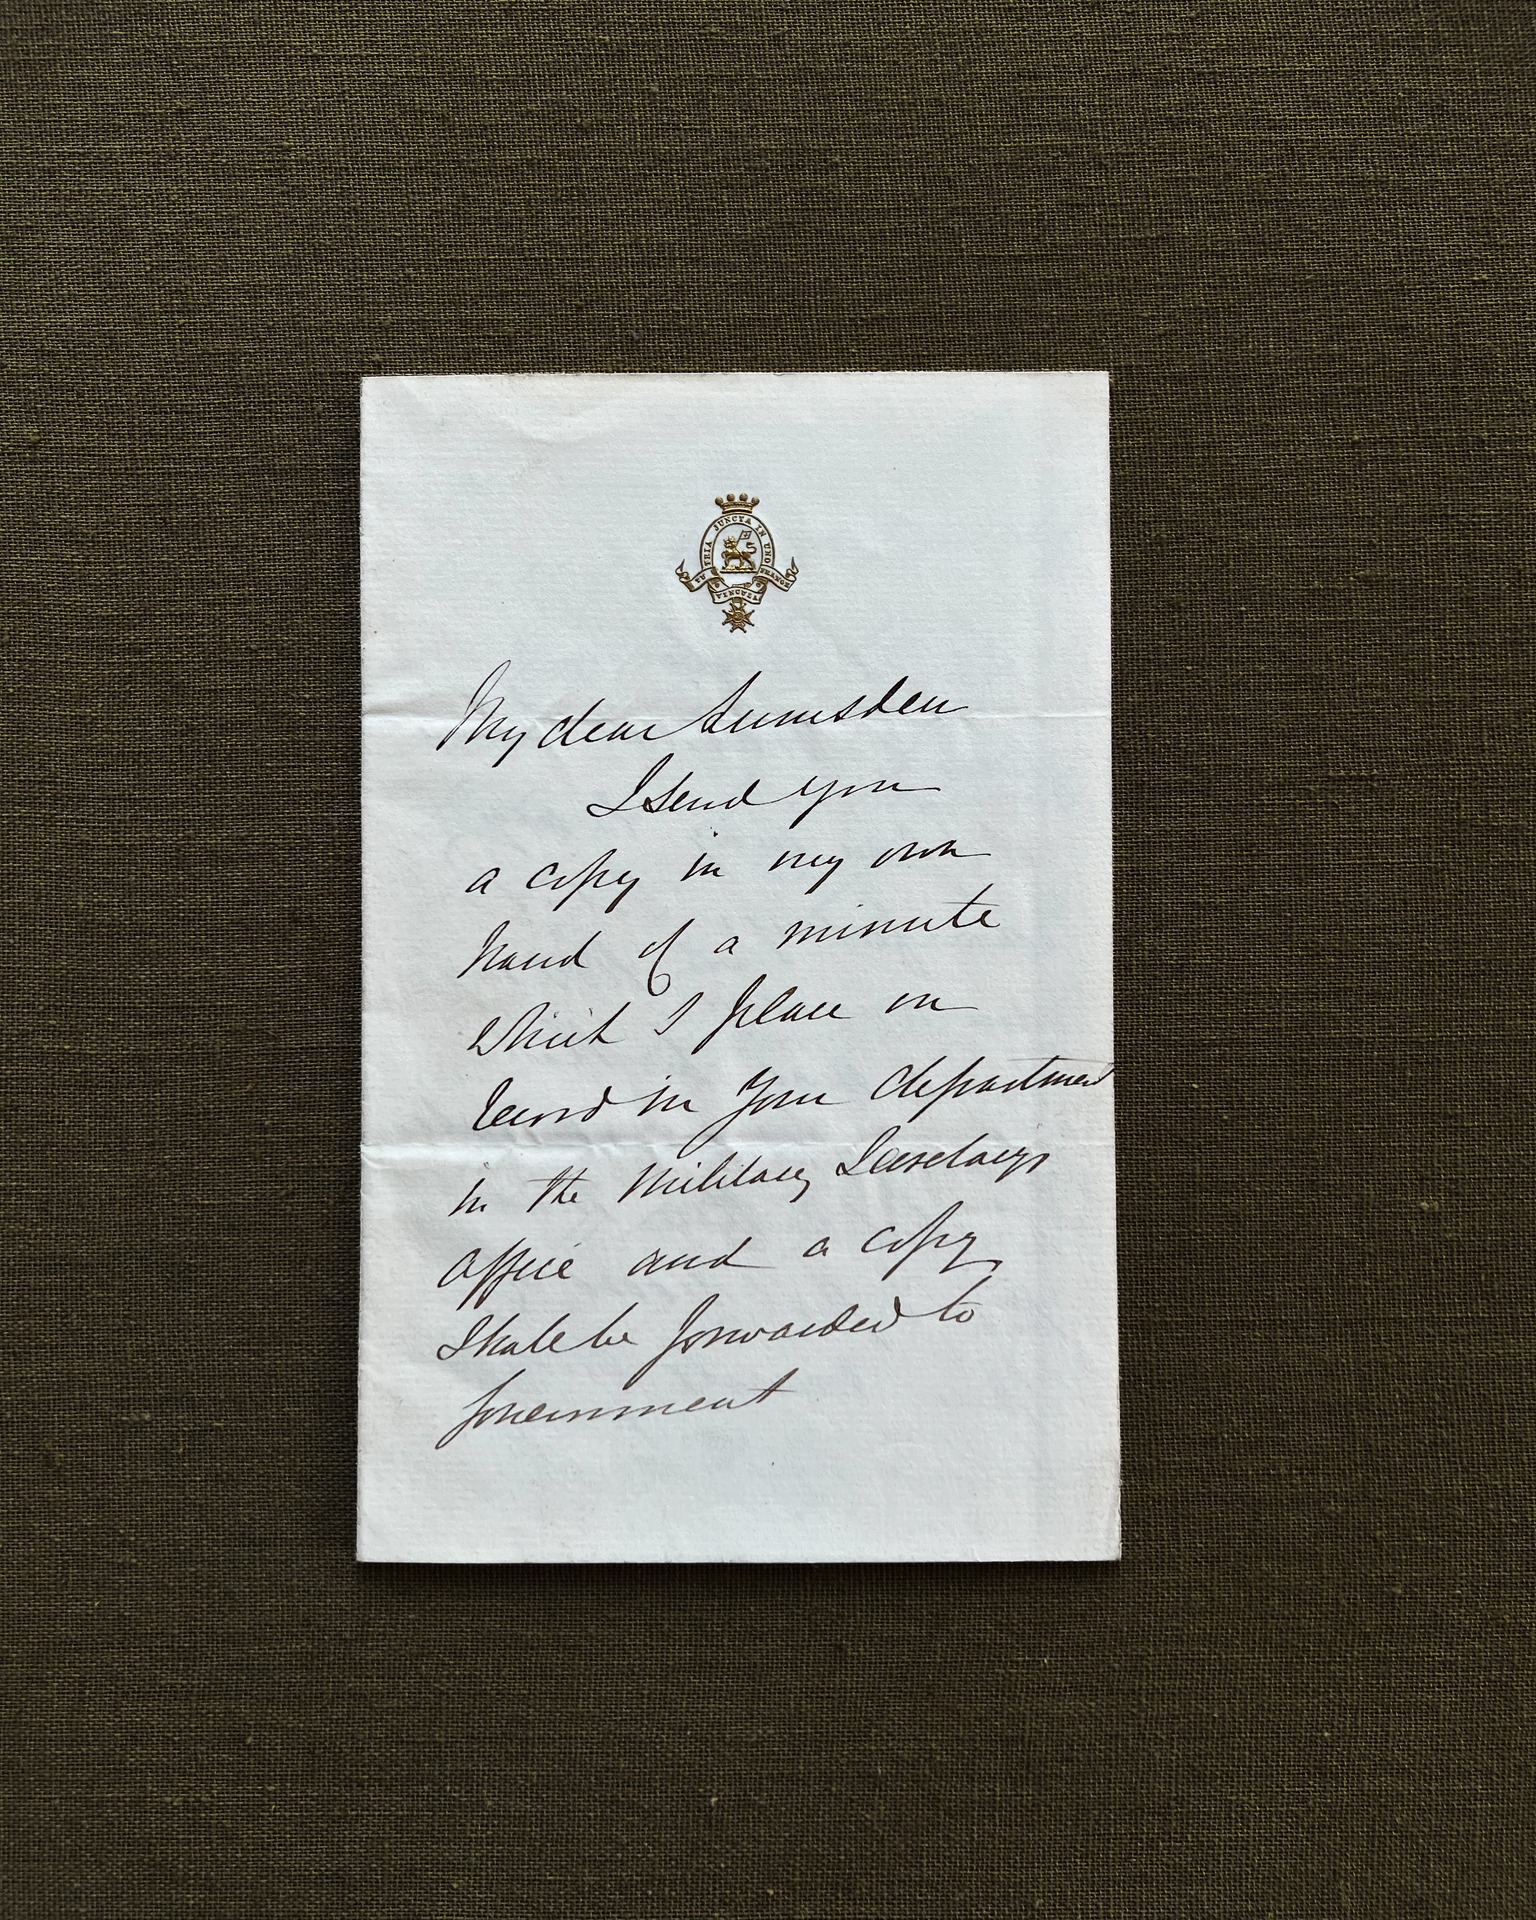 TRIA JUNCTA IN UNO
My dear Lumsden
I send you
a copy in my own
hand of a minute
which I place on
record in your department
in the Military Secretarys
office and a copy
shall be forwarded to
Government